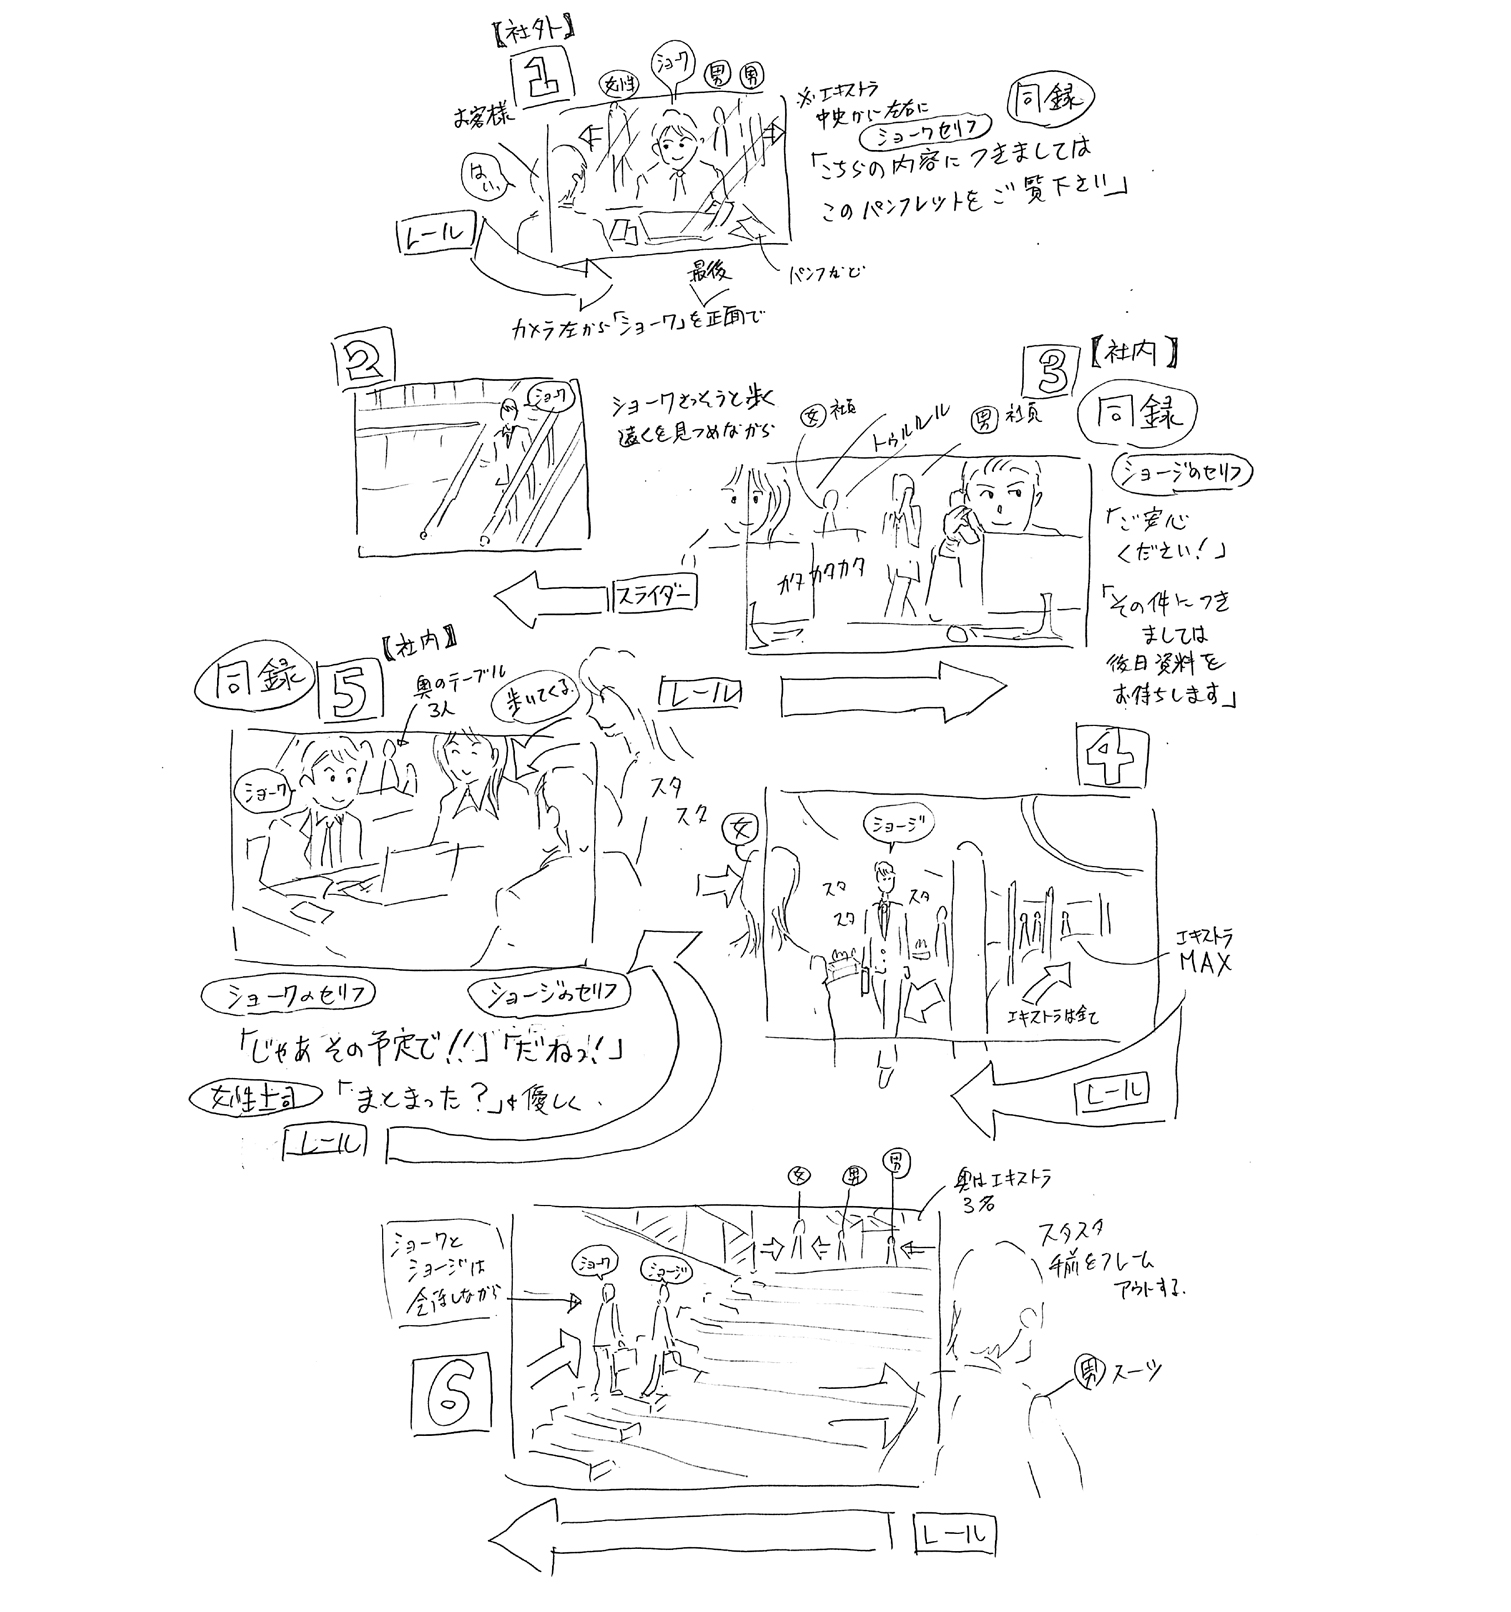 【社外】
1
お客様
女性
ショーク
男
男
※エキストラ
中央から左右に
同録
ショークセリフ
「こちらの内容につきましては
このパンフレットをご覧下さい」
はい
レール
パンフなど
最後
カメラ左から「ショーク」を正面で
2
ショーク
ショークさっそうと歩く
遠くを見つめながら
スライダー
3
【社内】
同録
女 社員
トゥルルル
男 社員
カタカタカタ
ショージのセリフ
「ご安心
ください！」
「その件につき
ましては
後日資料を
お待ちします」
レール
4
女
ショージ
スタ
スタ
スタ
エキストラ
MAX
エキストラは全て
レール
同録
5
【社内】
奥のテーブル
3人
歩いてくる
ショーク
スタ
スタ
ショークのセリフ
ショージのセリフ
「じゃあ その予定で！！」「だねっ！」
女性上司
「まとまった？」
優しく
レール
6
ショークと
ショージは
会話しながら
ショーク
ショージ
女
男
男
奥はエキストラ
3名
スタスタ
手前をフレーム
アウトする
男 スーツ
レール